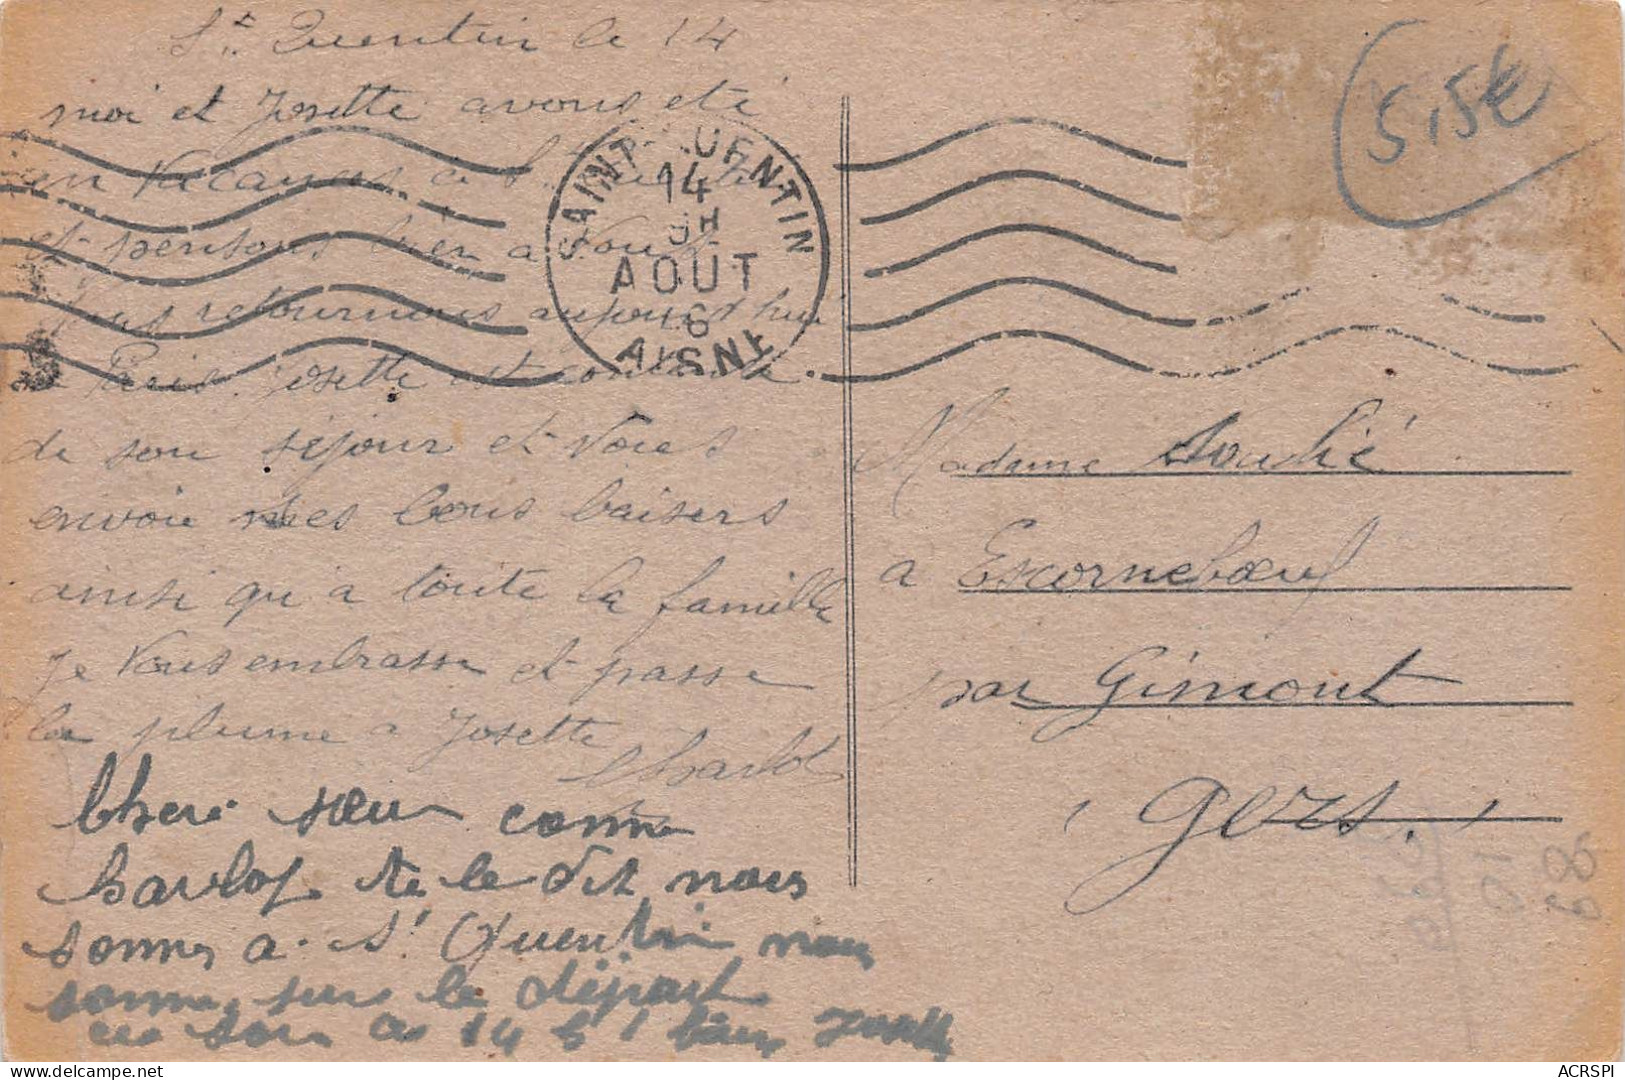 St Quentin le 14
moi et Josette avons eté
en Vacances a St Quentin
et pensons bien a Vous
Nous retournons aujourd'hui
a Paris. Josette est contente
de son séjour et Voies
envoie mes bons baisers
ainsi qu'a toute la famille
Je Vous embrasse et passe
la plume a Josette
Charlot
Cheri sœur comme
barlot te le dit nous
sommes a. St Quentin nous
sommes sur le départ
ce soir ce 14 Josette
SAINT-QUENTIN
14
9H
AOUT
AISNE
5,5€
Madame Soulié
a Escornebœuf
par Gimont
(Gers.)
ACRSPI